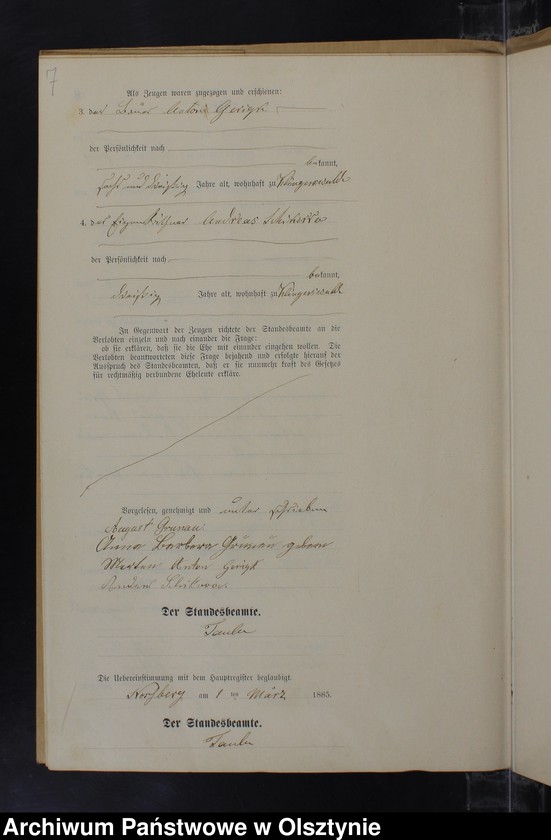 7
Als Zeugen waren zugezogen und erschienen:
3. der Bauer Anton Gerigk
der Persönlichkeit nach
bekannt,
sechs und dreißig Jahre alt, wohnhaft zu
4. der Eigenkäthner Andreas
der Persönlichkeit nach
bekannt,
dreißig Jahre alt, wohnhaft zu
In Gegenwart der Zeugen richtete der Standesbeamte an die
Verlobten einzeln und nach einander die Frage:
ob sie erklären, daß sie die Ehe mit einander eingehen wollen. Die
Verlobten beantworteten diese Frage bejahend und erfolgte hierauf der
Ausspruch des Standesbeamten, daß er sie nunmehr kraft des Gesetzes
für rechtmäßig verbundene Eheleute erkläre.
Vorgelesen, genehmigt und unterschrieben
August Grunau
Anna Barbara Grunau geborn
Merten Anton Gerigk
Der Standesbeamte.
Die Uebereinstimmung mit dem Hauptregister beglaubigt.
am 1 ten März 1885.
Der Standesbeamte.
Archiwum Państwowe w Olsztynie